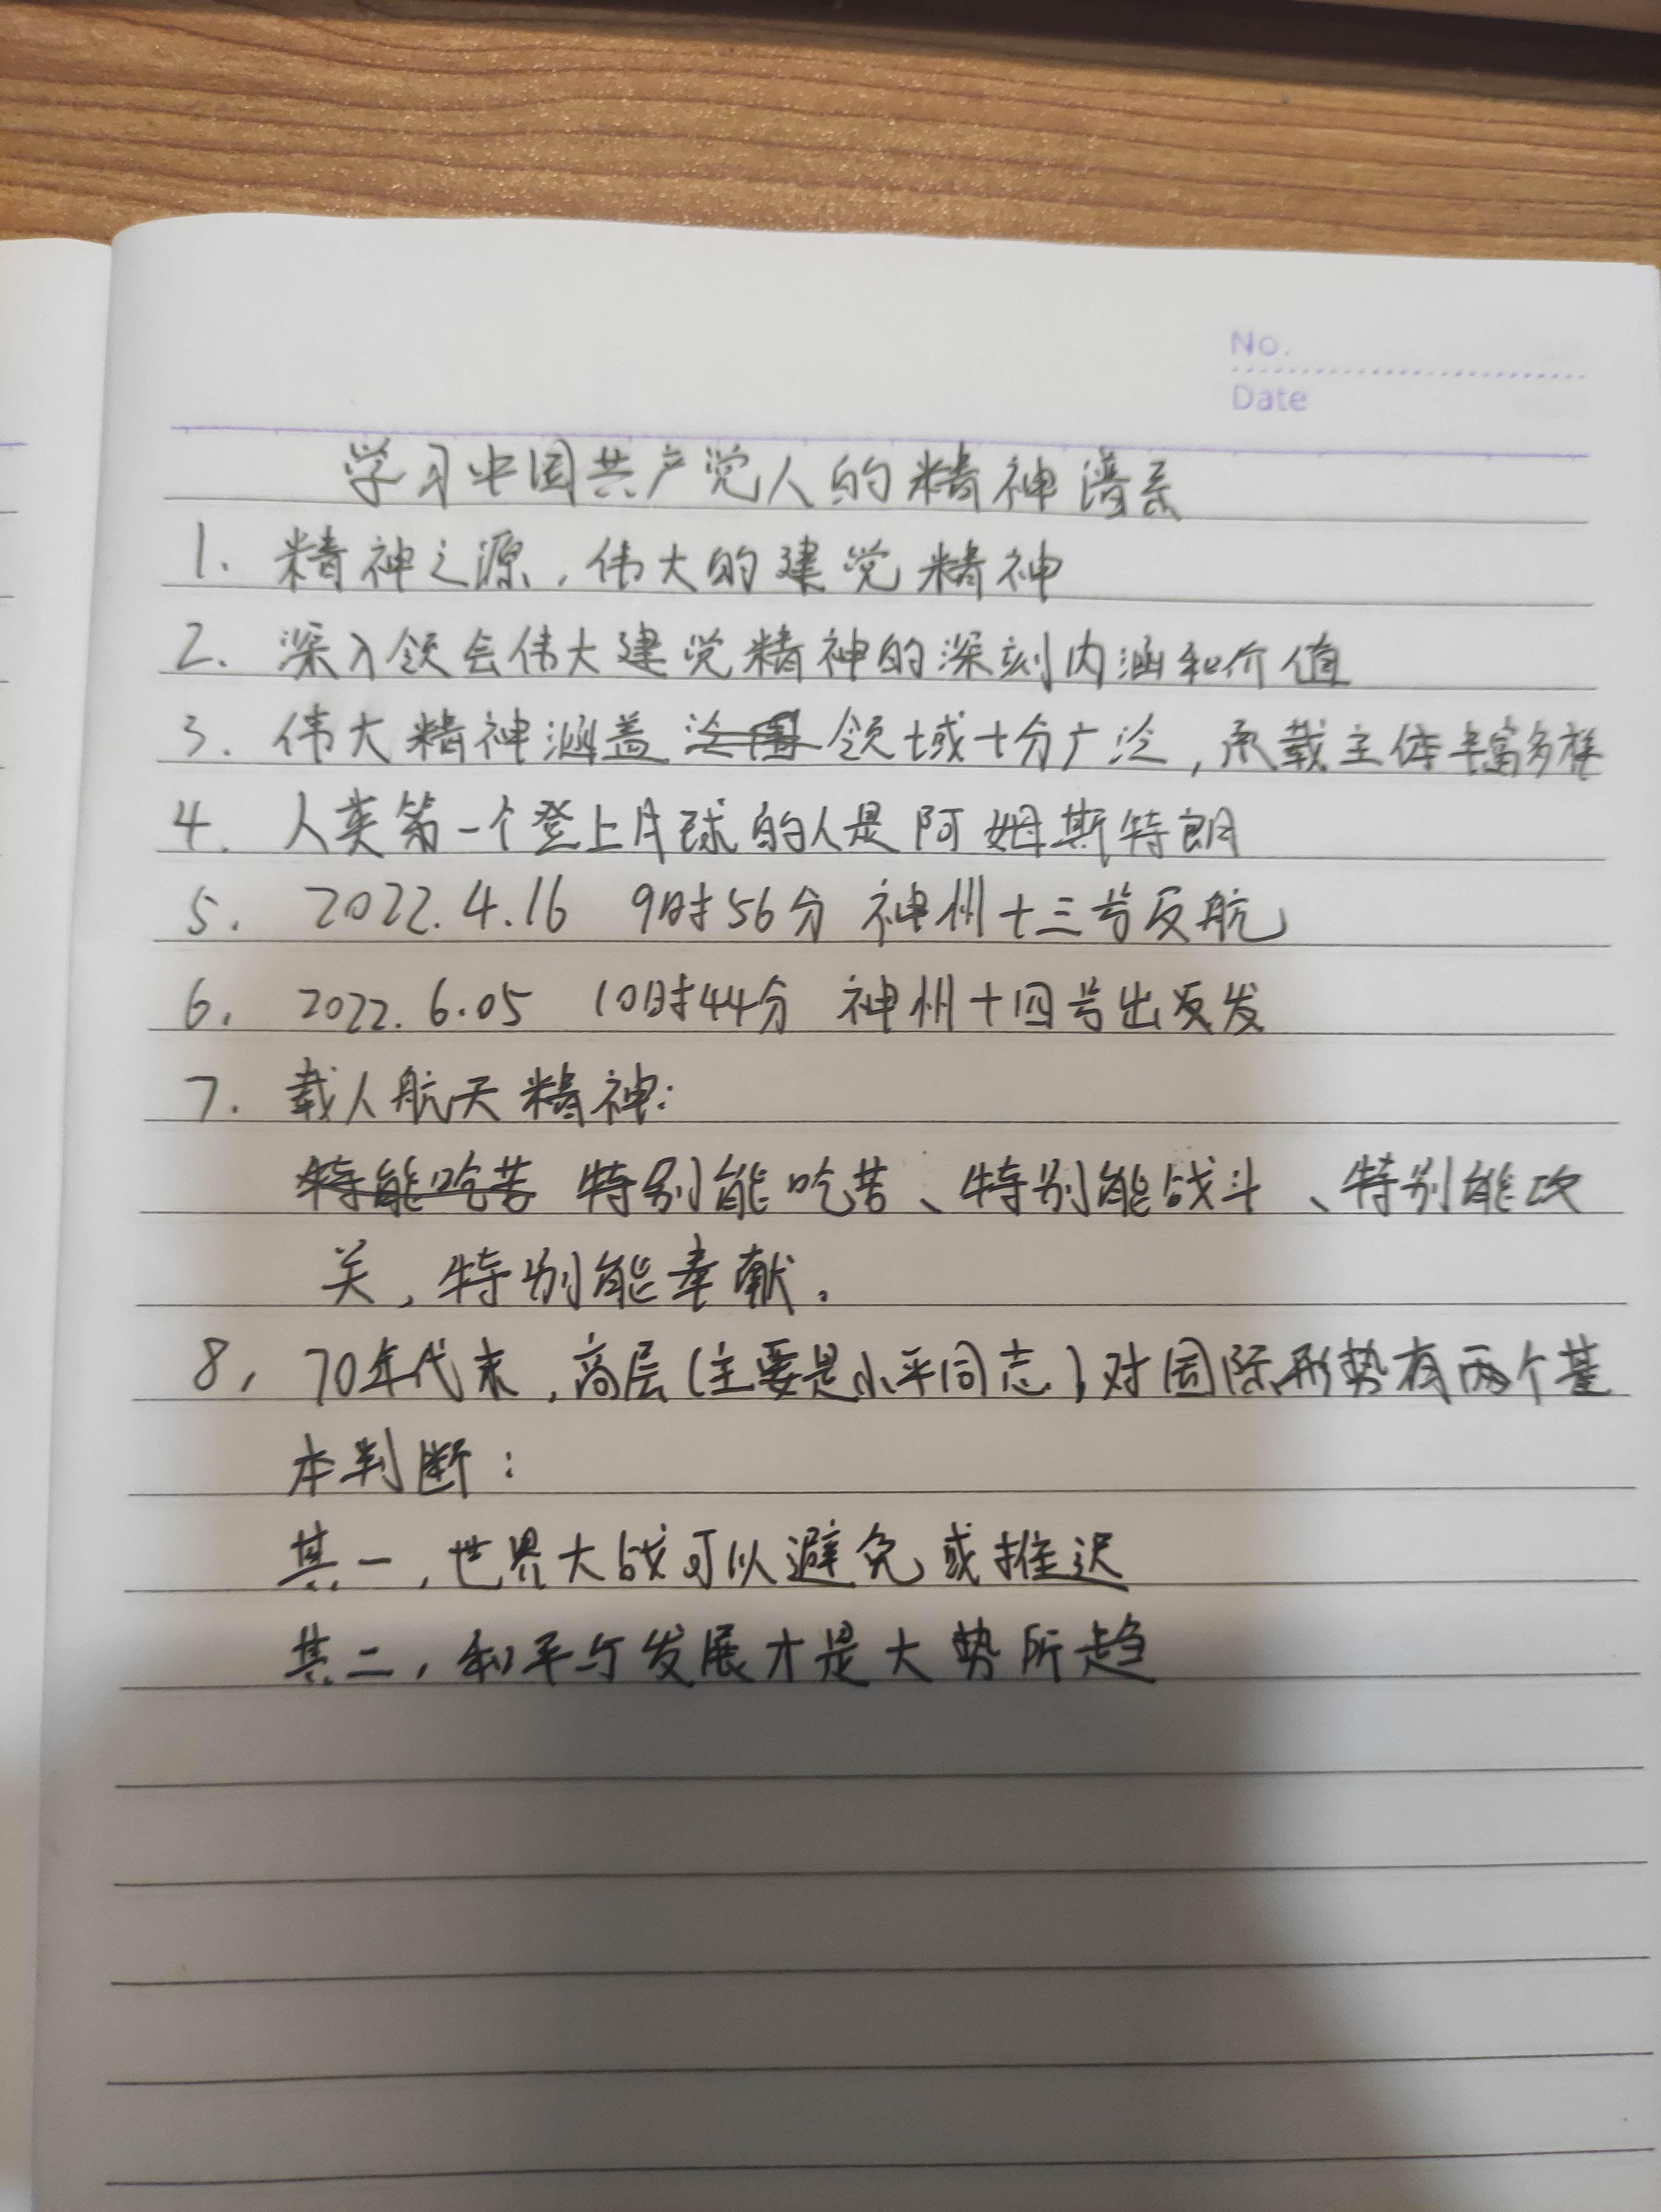 No.
Date
学习中国共产党人的精神谱系
1. 精神之源,伟大的建党精神
2. 深入领会伟大建党精神的深刻内涵和价值
3. 伟大精神涵盖 领域十分广泛,承载主体丰富多样
4. 人类第一个登上月球的人是阿姆斯特朗
5. 2022.4.16 9时56分 神州十三号反航
6. 2022.6.05 10时44分 神州十四号出反发
7. 载人航天精神:
特能吃苦 特别能吃苦、特别能战斗、特别能攻
关,特别能奉献.
8, 70年代末,高层(主要是小平同志)对国际形势有两个基
本判断:
其一,世界大战可以避免或推迟
其二,和平与发展才是大势所趋